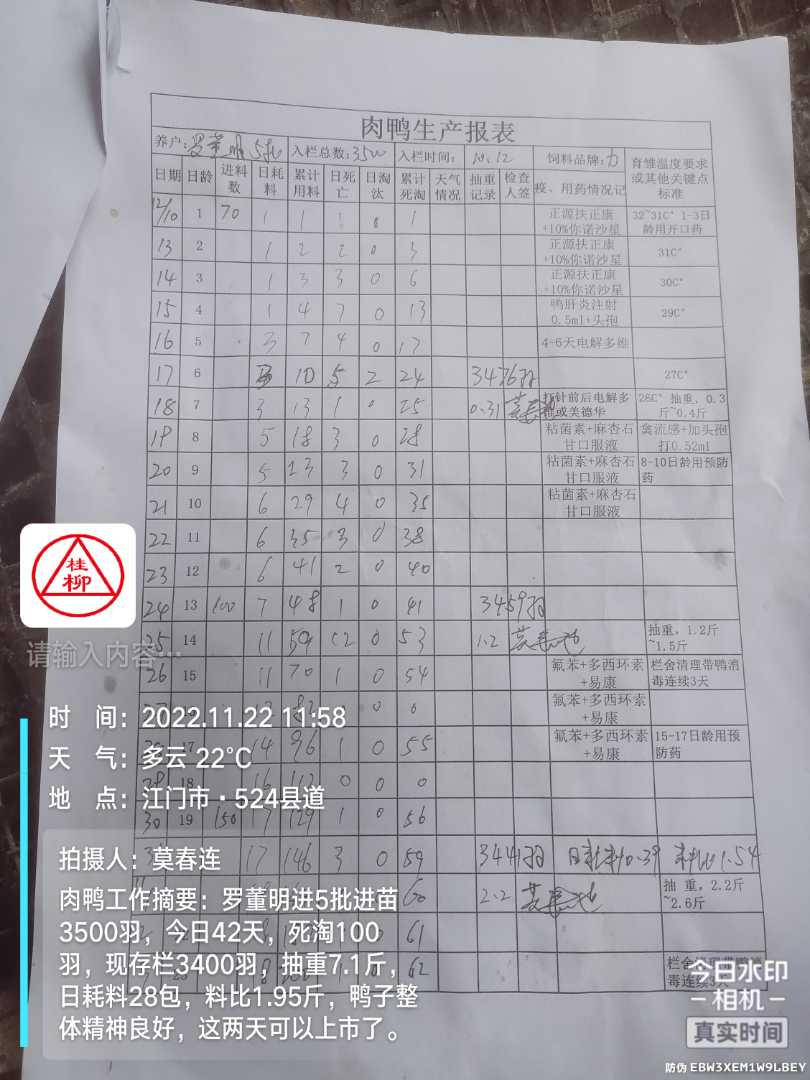 肉鸭生产报表
养户: 罗董明 5批 入栏总数: 3500 入栏时间: 10.12 饲料品牌: 力 育雏温度要求或其他关键点标准
日期 日龄 进料数 日耗料 累计用料 日死亡 日淘汰 累计死淘 天气情况 抽重记录 检查人签 疫、用药情况记
12/10 1 70 1 1 1 0 1 正源扶正康+10%你诺沙星 32~31C° 1-3日龄用开口药
13 2 1 2 2 0 3 正源扶正康+10%你诺沙星 31C°
14 3 1 3 3 0 6 正源扶正康+10%你诺沙星 30C°
15 4 1 4 7 0 13 鸭肝炎注射0.5ml+头孢 29C°
16 5 3 7 4 0 17 4-6天电解多维
17 6 10 5 2 24 3476羽 27C°
18 7 3 13 1 0 25 0.31 打针前后电解多维或美德华 26C° 抽重,0.3斤~0.4斤
19 8 5 18 3 0 28 粘菌素+麻杏石甘口服液 禽流感+加头孢打0.52ml
20 9 5 23 3 0 31 粘菌素+麻杏石甘口服液 8-10日龄用预防药
21 10 6 29 4 0 35 粘菌素+麻杏石甘口服液
22 11 6 35 3 0 38
23 12 6 41 2 0 40
24 13 100 7 48 1 0 41 3459羽
25 14 11 59 12 0 53 1.2 抽重,1.2斤~1.5斤
26 15 11 70 1 0 54 氟苯+多西环素+易康 栏舍清理带鸭消毒连续3天
0 0 氟苯+多西环素+易康
17 14 96 1 0 55 氟苯+多西环素+易康 15-17日龄用预防药
18 0 0 0
30 19 150 17 129 1 0 56
17 146 3 0 59 3441羽 日耗料0.39 料比1.54
60 2.2 抽重,2.2斤~2.6斤
61
62 栏舍清理带鸭消毒连续3天
桂柳
请输入内容…
时 间: 2022.11.22 11:58
天 气: 多云 22℃
地 点: 江门市·524县道
拍摄人: 莫春连
肉鸭工作摘要: 罗董明进5批进苗
3500羽，今日42天，死淘100
羽，现存栏3400羽，抽重7.1斤，
日耗料28包，料比1.95斤，鸭子整
体精神良好，这两天可以上市了。
今日水印
-相机-
真实时间
防伪 EBW3XEM1W9LBEY